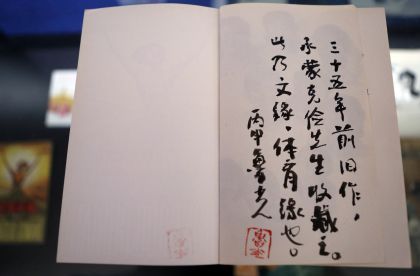 三十五年前旧作，
承蒙克俭先生收藏之。
此乃文缘、体育缘也。
丙申鲁光